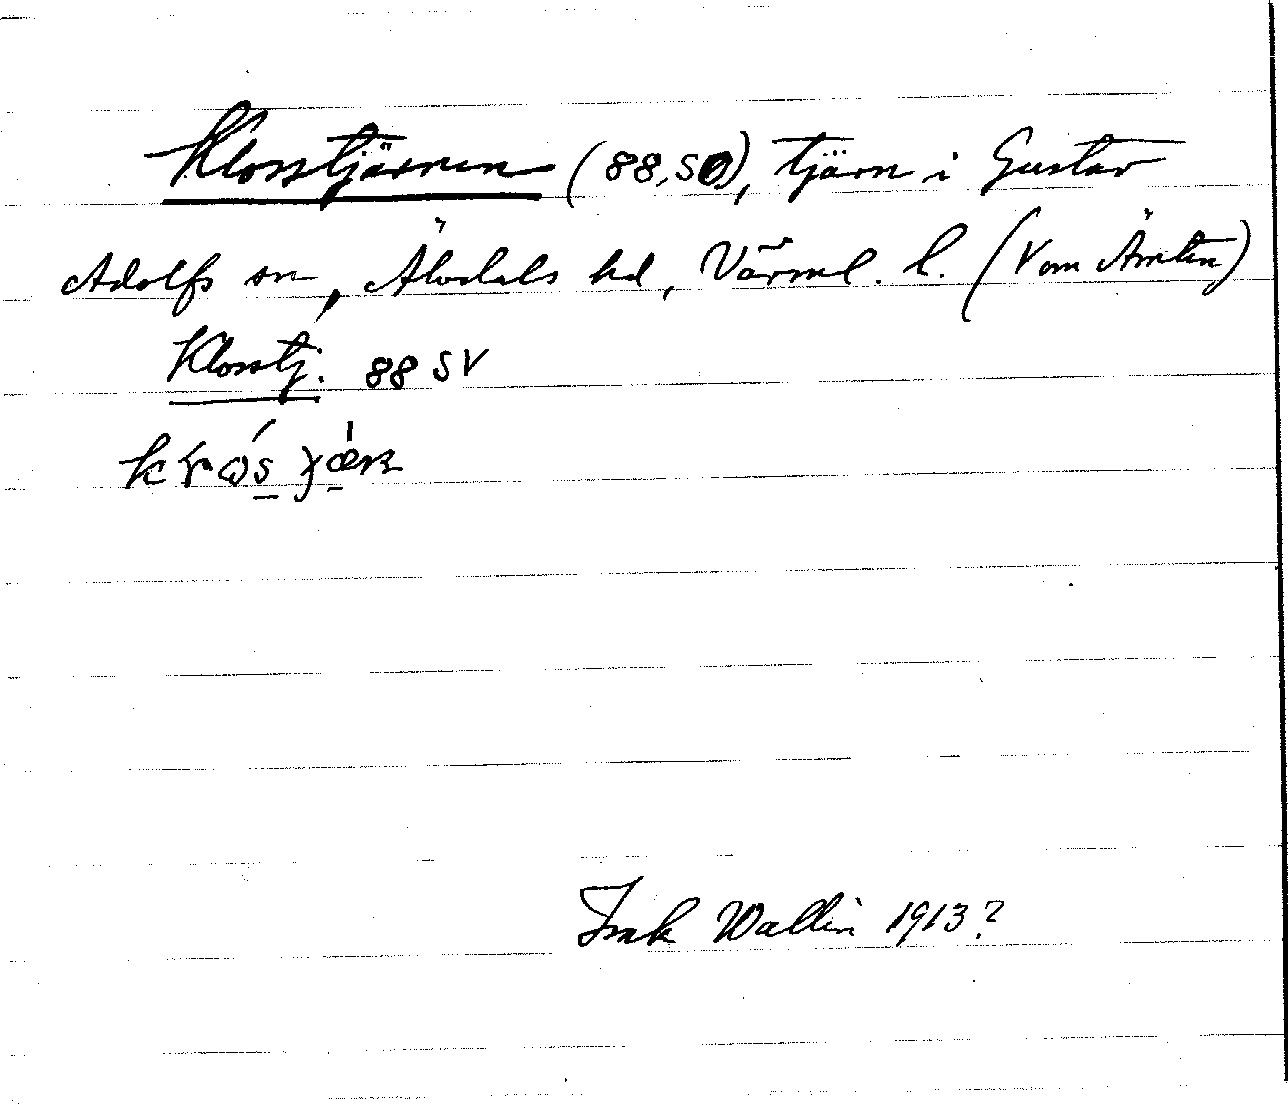 Klosstjärnen (88,SO), tjärn i Gustav
Adolfs sn, Älvdals hd, Värml. l. (V om Ämten)
Klosstj. 88 SV
Isak Wallin 1913?